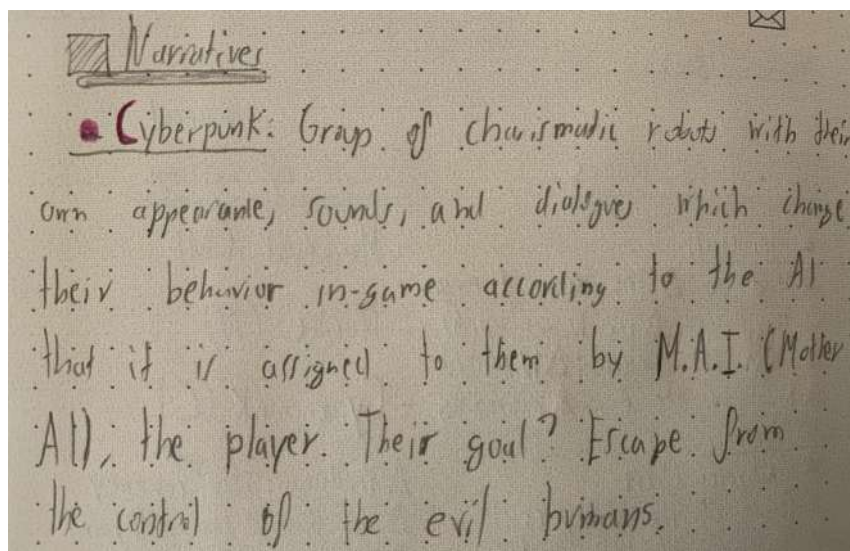 Narratives
• Cyberpunk: Group of charismatic robots with their
own appearance, sounds, and dialogues which change
their behavior in-game according to the AI
that it is assigned to them by M.A.I. (Mother
AI), the player. Their goal? Escape from
the control of the evil humans.